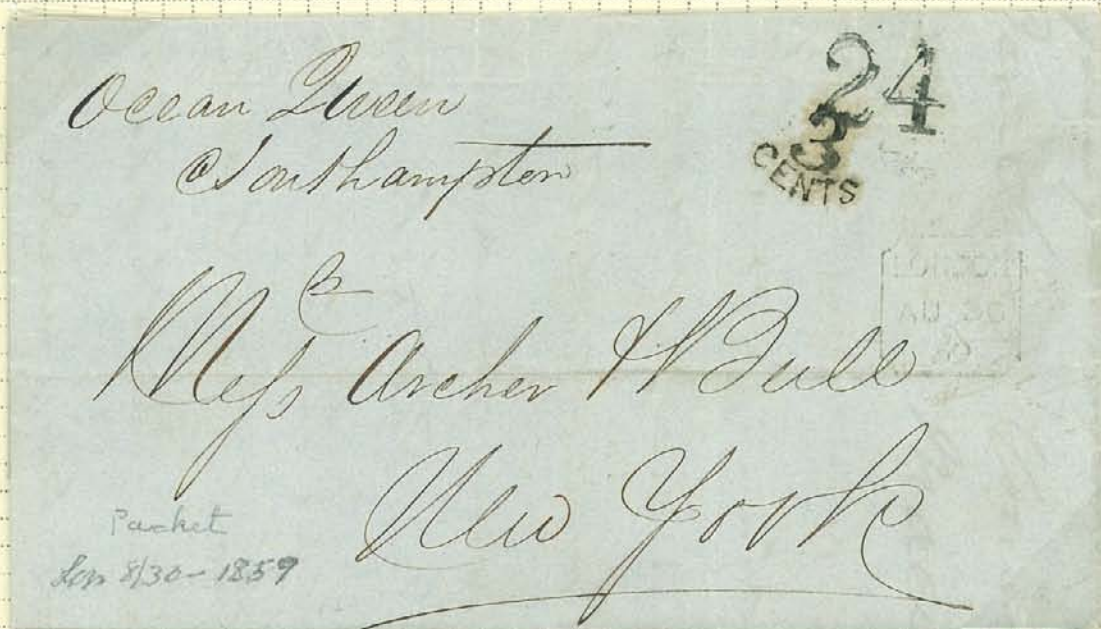 Ocean Queen
@ Southampton
24
3
CENTS
Messrs Archer & Bull
New York
Packet
Lon 8/30 - 1859